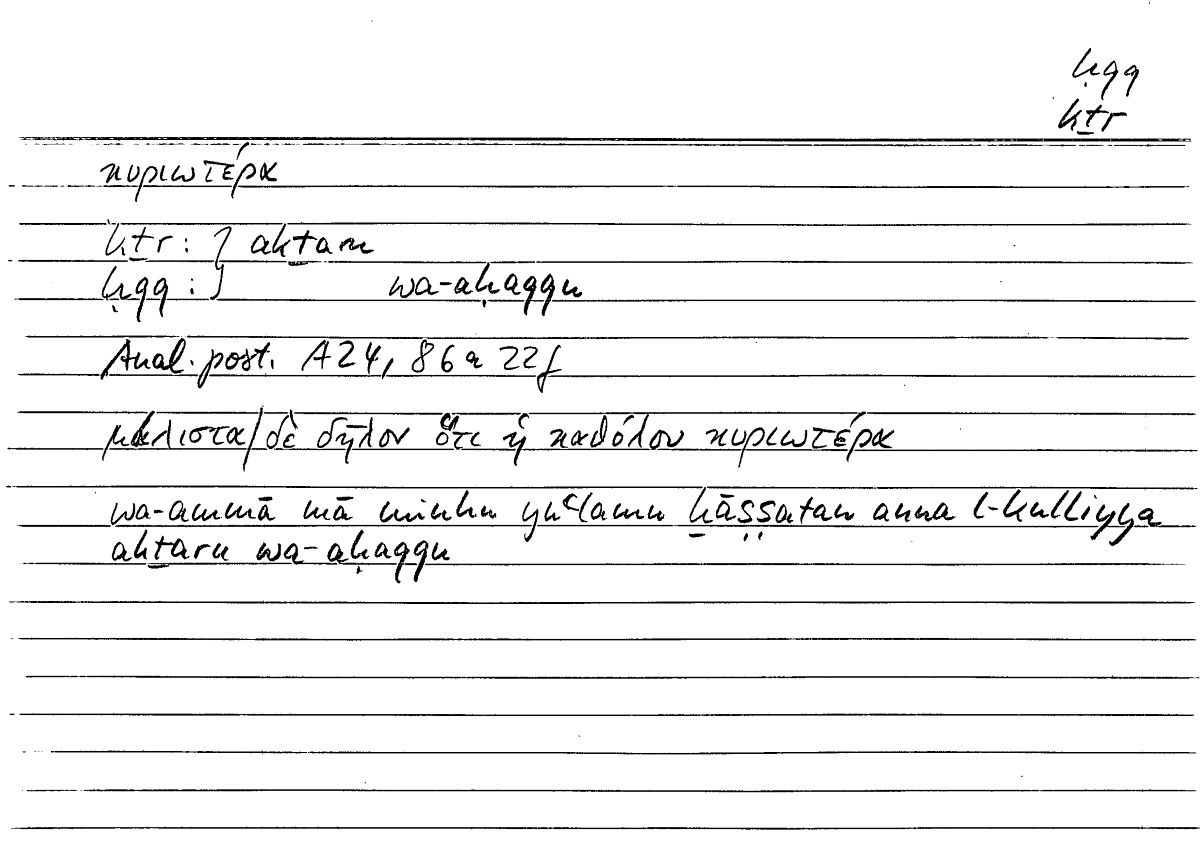 ḥqq
kṯr
κυριωτέρα
kṯr : } akṯaru
ḥqq : } wa-aḥaqqu
Anal. post. A 24, 86 a 22 f
μάλιστα/δὲ δῆλον ὅτι ἡ καθόλου κυριωτέρα
wa-ammā mā minhu yuʿlamu ḫāṣṣatan anna l-kulliyya
akṯaru wa-aḥaqqu